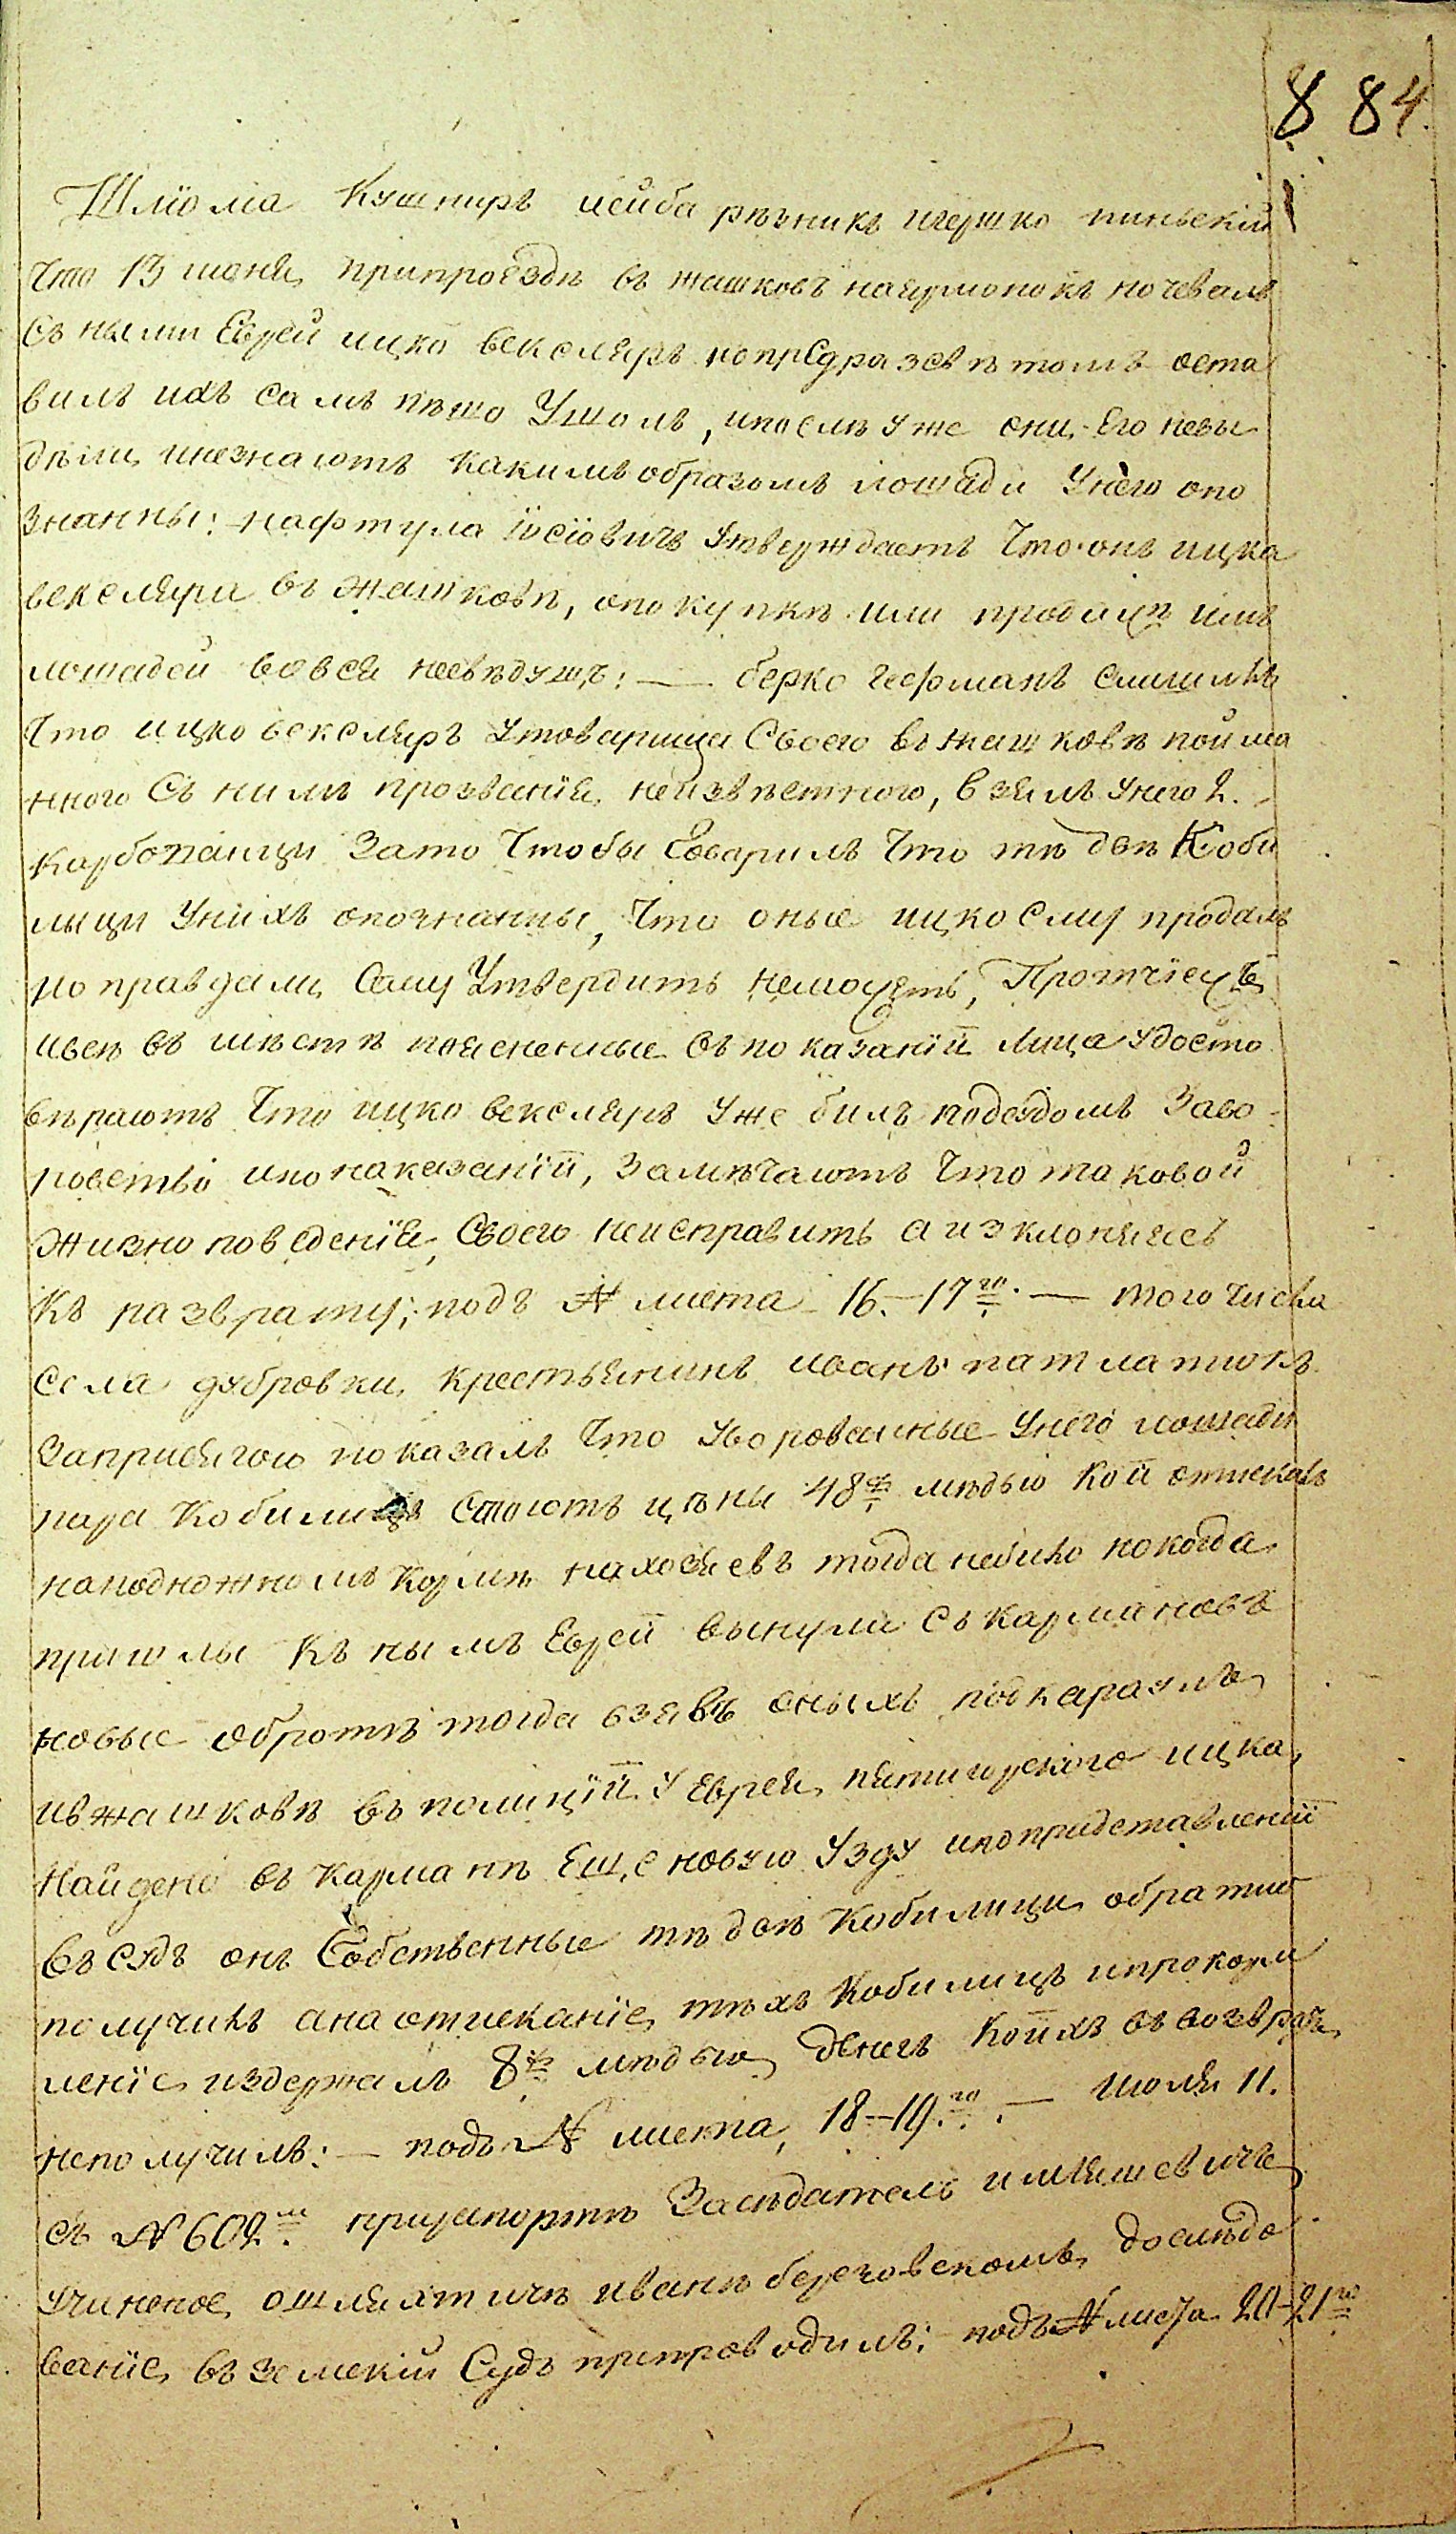 8 84.
Шлiома Кушниръ лейба резникъ игершко пиньскiй
что 13 июня, припроѣздѣ въ жашковъ наярмонокъ ночевалъ
съ ными Еврей ицко векслярь нопредразсвѣтомъ оста
вилъ ихъ самъ пѣшо Ушолъ, ипослѣ уже они Его невы
дѣли, инезнаютъ какимъ образомъ лошади Унего опо
знанны: нафтула iосiовичъ Утверждаетъ что онъ ицка
вексляра въ жашковѣ, опокупкѣ или продажѣ имъ
лошадей вовся несвѣдущъ: — берко гофманъ слишилъ
что ицко векслярь Утоварища Своего въ жашковѣ пойма
нного Съ нимъ прозванiя, неизвѣстного, взялъ Унего 2.
карбованци Зато Чтобы Говарилъ Что тѣ двѣ Коби
лыци Унихъ опознанны, Что оные ицко Ему продалъ
но правдали Сему Утвердить неможетъ, Протчiе
въ мѣстѣ поясненные въ показанiи лица удосто
вѣраютъ Что ицко векслярь Уже билъ подсудомъ Заво
ровство ипонаказанiи, Замѣчаютъ Что таковой
жизно поведенiя, Своего неисправитъ а изклонялся
Къ разврату; подъ № листа 16.–17го. — того числа
села дубровки, крестьянинъ иванъ патлатюкъ
Заприсягою показалъ Что Уворованные Унего лошади
пара Кобилицъ Стоютъ цѣны 48 медью кои
наподножномъ кормѣ нихозяевъ тогда небило нокогда
пришлы Къ нымъ Евреи вынули Съ кармановъ
новые обротѣ тогда взявъ оныхъ подкараулъ
ивжашковѣ въ полицiи У Еврея, пятигорского ицка,
Найдено въ карманѣ Еще новую Узду ипопридставленiи
Въ Судъ онъ Собственные тѣ двѣ Кобилици, обратно
получилъ анаотисканiе, тѣхъ Кобилицъ ипрокорм
ленiе, издержалъ 8 медью, денегъ коихъ въ возвратъ
неполучилъ: — подъ № листа, 18–19.го. — июля 11.
съ № 602м. прирапортѣ Засѣдатель
учиненое, ошляхтичѣ иванѣ березовскомъ, дослѣдо
ванiе, въ земскiй Судъ препроводилъ: подъ № листа 20–21го